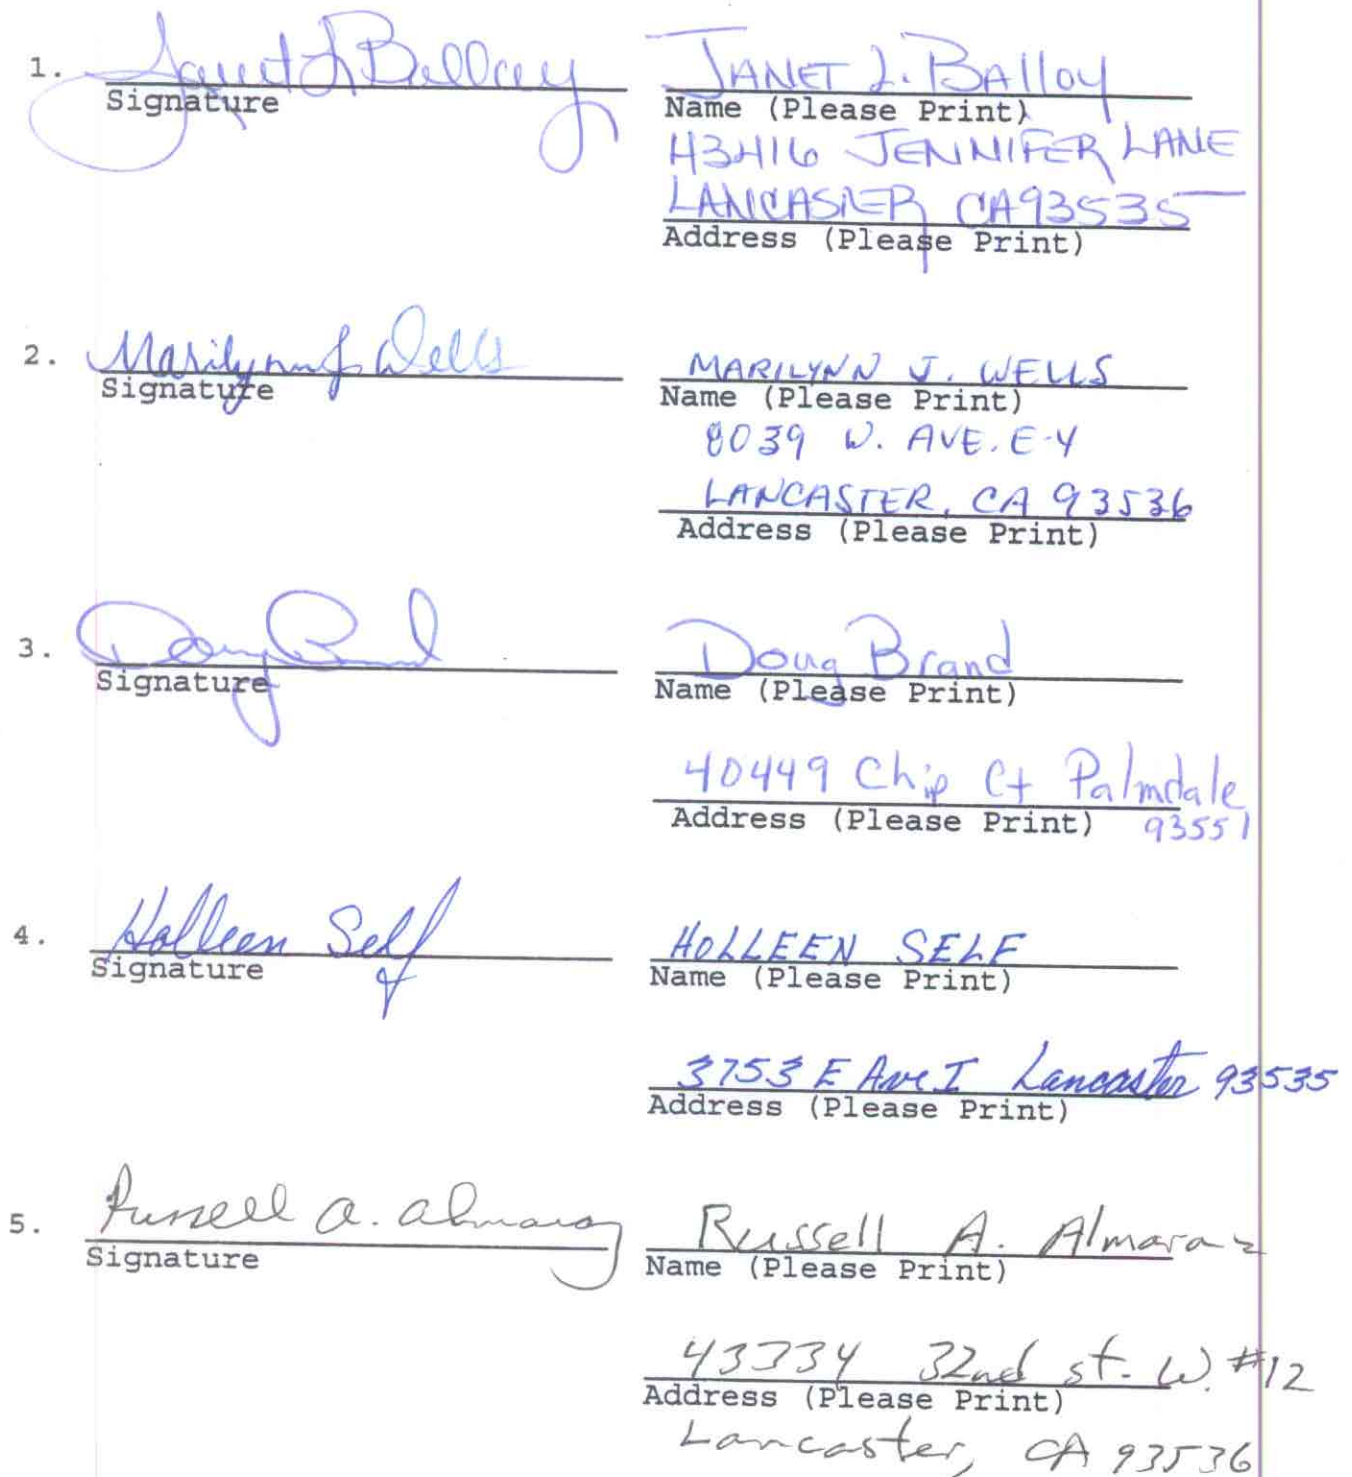 1. Janet L Balloy JANET L. BAlloy
Signature Name (Please Print)
43416 JENNIFER LANE
LANCASTER CA 93535
Address (Please Print)
2. Marilynn J Wells MARILYNN J. WELLS
Signature Name (Please Print)
8039 W. AVE. E-4
LANCASTER, CA 93536
Address (Please Print)
3. Doug Brand Doug Brand
Signature Name (Please Print)
40449 Chip Ct Palmdale
Address (Please Print) 93551
4. Holleen Self HOLLEEN SELF
Signature Name (Please Print)
3753 E Ave I Lancaster 93535
Address (Please Print)
5. Russell A. Almaraz Russell A. Almaraz
Signature Name (Please Print)
43334 32nd st. W. #12
Address (Please Print)
Lancaster, CA 93536